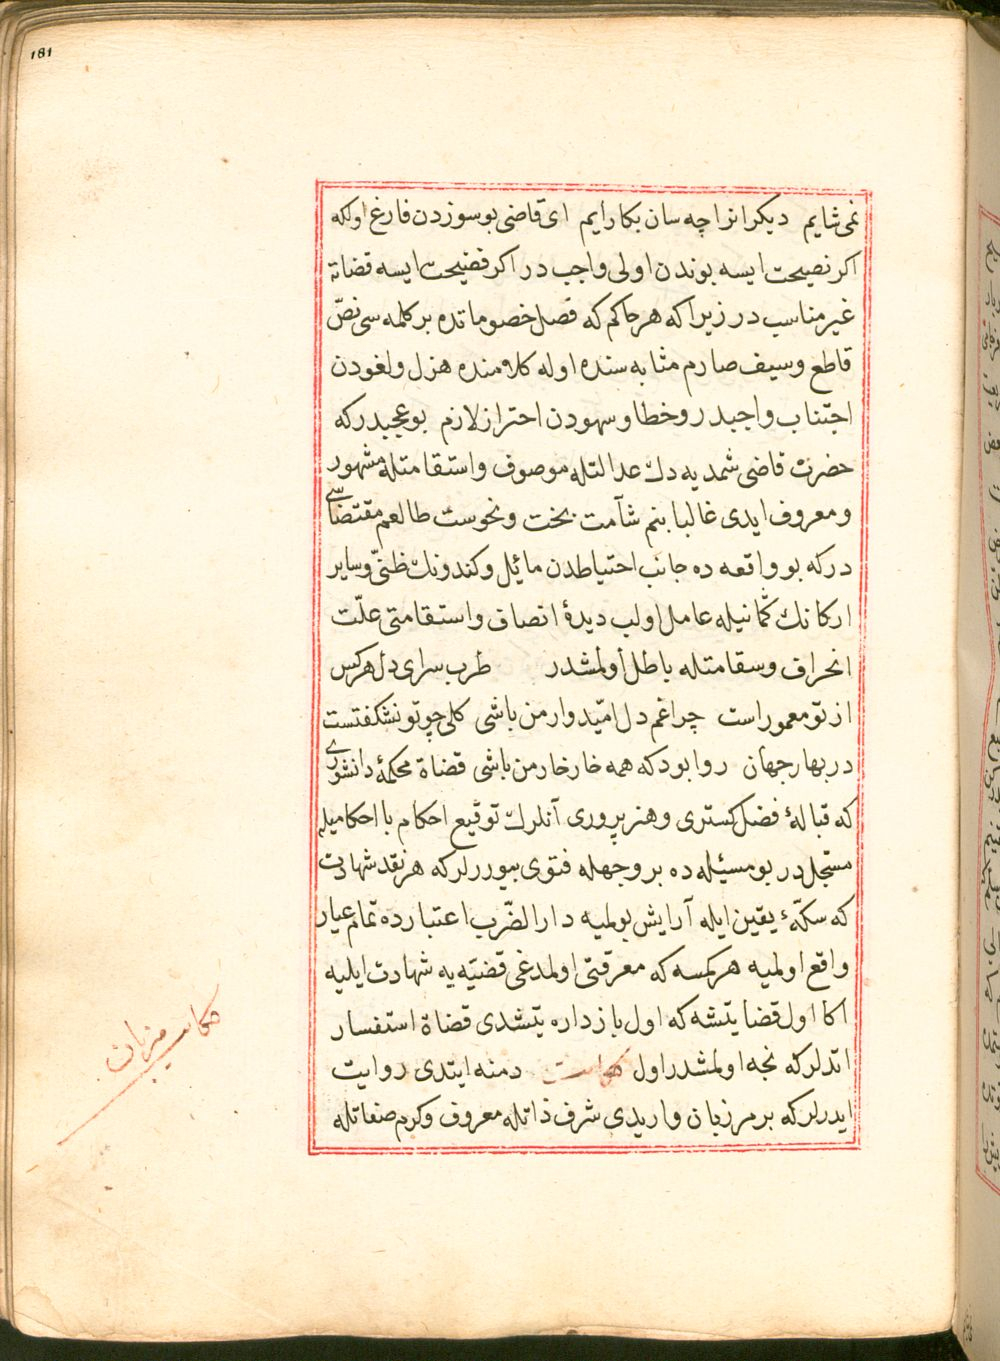 181
نمی شایم دیکرانرا چه سان بکار ایم ای قاضی بو سوزدن فارغ اول که
اکر نصیحت ایسه بوندن اولی واجب در اکر فضیحت ایسه قضاته
غیر مناسب در زیرا که هر حاکم که فصل خصوماتده بر کلمه سی نصّ
قاطع و سیف صارم مثابه سنده اوله کلامنده هزل و لغودن
اجتناب واجبدر و خطا و سهودن احتراز لازم بو عجبدر که
حضرت قاضی شمدیه دك عدالتله موصوف و استقامتله مشهور
و معروف ایدی غالبا بنم شآمت بخت و نحوست طالعم مقتضاسی
در که بو واقعه ده جانب احتیاطدن مائل و کندونك ظنّی و سایر
ارکانك کمانیله عامل اولب دیدهٔ انصاف و استقامتی علّت
انحراف و سقامتله باطل اولمشدر طرب سرای دل هرکس
از تو معمور است چرا غم دل امّیدوار من باشی کلی چو تو نشکفتست
در بهار جهان روا بود که همه خار خار من باشی قضاة محکمهٔ دانشوری
که قبالهٔ فضل کستری و هنرپروری آنلرك توقیع احکام با احکامیله
مسجّل در بو مسئله ده بر وجهله فتوی بیوررلر که هر نقد شهادت
که سکّهٔ یقین ایله آرایش بولمیه دار الضّرب اعتبارده تمام عیار
واقع اولمیه هر کمسه که معرفتی اولمدغی قضیّه یه شهادت ایلیه
اکا اول قضا یتشه که اول بازداره یتشدی قضاة استفسار
اتدلر که نجه اولمشدر اول حکایت دمنه ایتدی روایت
ایدرلر که بر مرزبان وار یدی شرف ذاتله معروف و کرم صفاتله
حکایت مرزبان